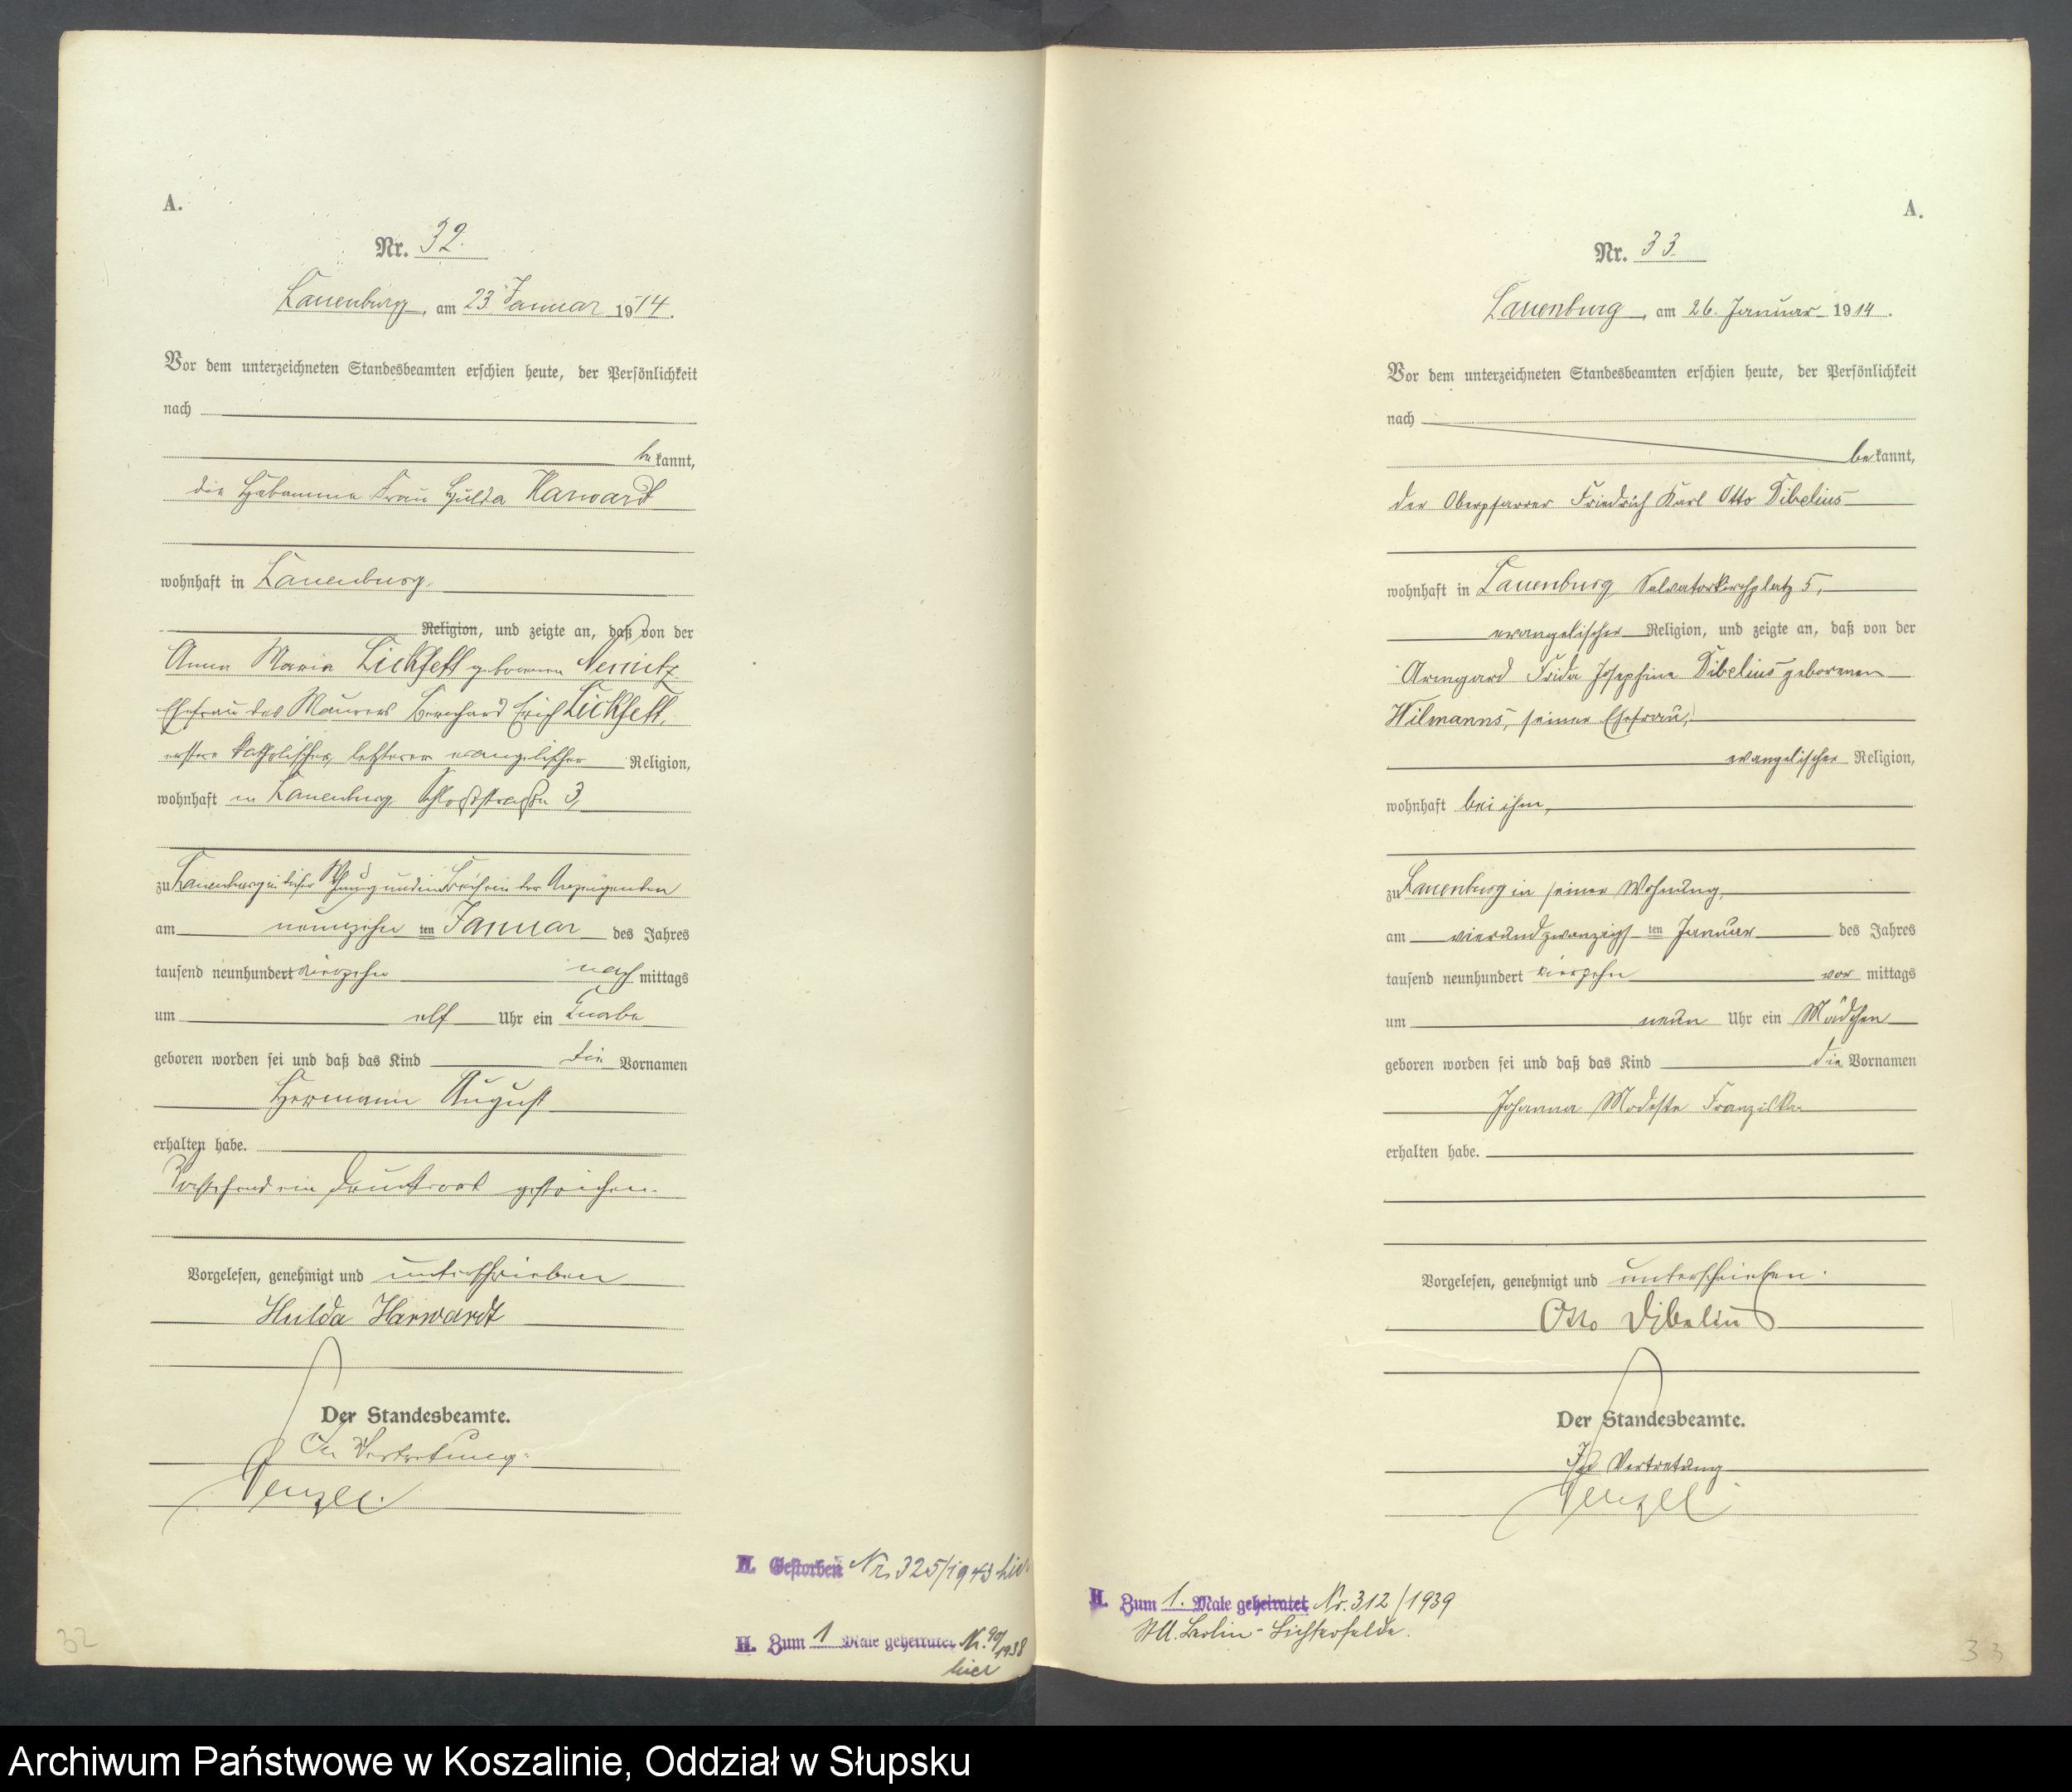 A.
Nr. 32.
Lauenburg, am 23 Januar 1914.
Vor dem unterzeichneten Standesbeamten erschien heute, der Persönlichkeit
nach
be kannt,
die Hebamme Frau Hulda Harwardt
wohnhaft in Lauenburg,
Religion, und zeigte an, daß von der
Anna Maria Lickfett geborenen Nemitz
Ehefrau des Maurers Bernhard Erich Lickfett,
erstere katholischer, letzterer evangelischer Religion,
wohnhaft in Lauenburg Schloßstraße 3,
zu Lauenburg in dieser Wohnung und im Beisein der Anzeigenden
am neunzehn ten Januar des Jahres
tausend neunhundert vierzehn nach mittags
um elf Uhr ein Knabe
geboren worden sei und daß das Kind die Vornamen
Hermann August
erhalten habe.
Vorstehend ein Druckwort gestrichen.
Vorgelesen, genehmigt und unterschrieben
Hulda Harwardt
Der Standesbeamte.
In Vertretung:
H. Gestorben Nr. 325/1943 hier
H. Zum 1 Male geheiratet Nr. 90/1938
hier
32
A.
Nr. 33.
Lauenburg, am 26. Januar 1914.
Vor dem unterzeichneten Standesbeamten erschien heute, der Persönlichkeit
nach
be kannt,
der Oberpfarrer Friedrich Karl Otto Dibelius
wohnhaft in Lauenburg Salvatorkirchplatz 5,
evangelischer Religion, und zeigte an, daß von der
Armgard Frida Josephine Dibelius geborenen
Wilmanns, seiner Ehefrau,
evangelischer Religion,
wohnhaft bei ihm,
zu Lauenburg in seiner Wohnung,
am vierundzwanzigs ten Januar des Jahres
tausend neunhundert vierzehn vor mittags
um neun Uhr ein Mädchen
geboren worden sei und daß das Kind die Vornamen
Johanna Modeste Franziska
erhalten habe.
Vorgelesen, genehmigt und unterschrieben.
Otto Dibelius
Der Standesbeamte.
In Vertretung
H. Zum 1. Male geheiratet Nr. 312/1939
St.A. Berlin-Lichterfelde.
33
Archiwum Państwowe w Koszalinie, Oddział w Słupsku